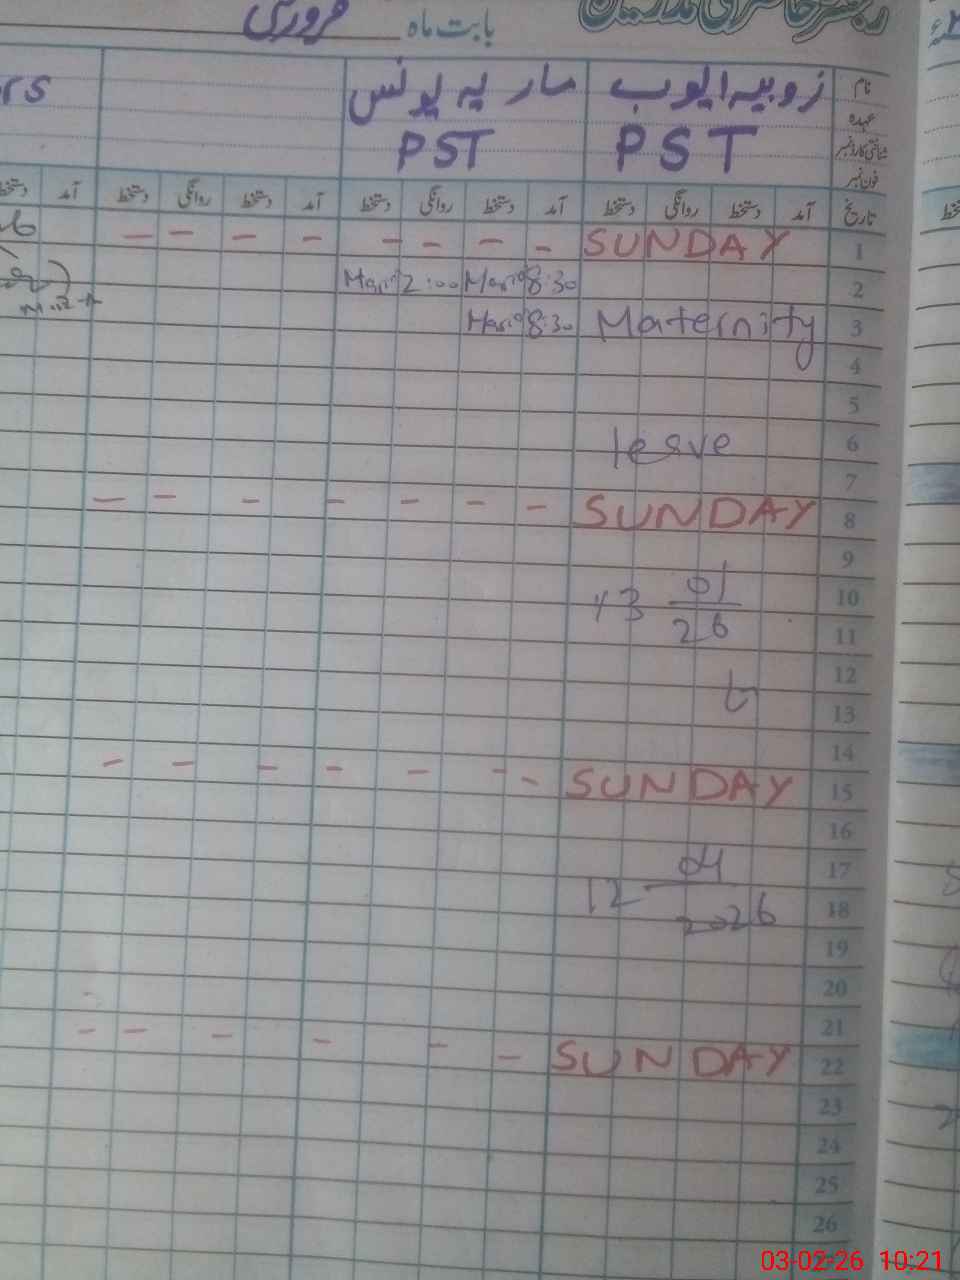 رجسٹر حاضری مدرسین
بابت ماہ فروری
نام زوبیہ ایوب ماریہ یونس
عہدہ PST PST
شناختی کارڈ نمبر
فون نمبر
تاریخ آمد دستخط روانگی دستخط آمد دستخط روانگی دستخط آمد دستخط روانگی دستخط آمد دستخط
1 SUNDAY - - - - - - - -
2 8:30 Maria 2:00 Maria
3 Maternity 8:30 Maria
4
5
6 leave
7
8 SUNDAY - - - - - - -
9
10 01
11 26
12
13 تا
14
15 SUNDAY - - - - - - -
16
17 04
18 12 2026
19
20
21
22 SUNDAY - - - - - -
23
24
25
26
03-02-26 10:21